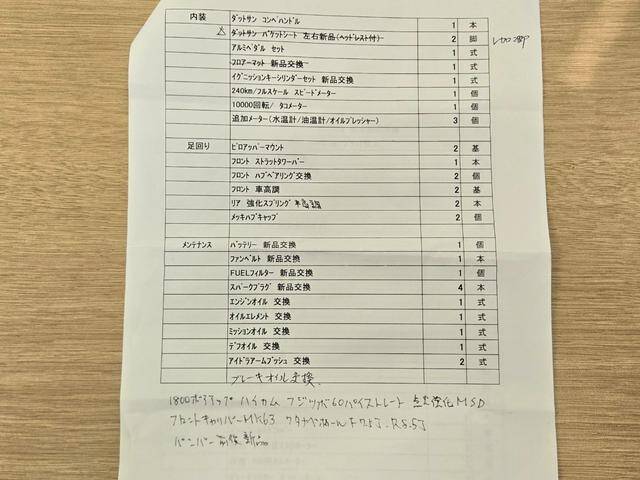 内装 ダットサン コンペハンドル 1 本
△ ダットサン バケットシート 左右新品(ヘッドレスト付) 2 脚 レカロ2脚
アルミペダル セット 1 式
フロアーマット 新品交換 1 式
イグニッションキーシリンダーセット 新品交換 1 式
240km/フルスケール スピードメーター 1 個
10000回転/ タコメーター 1 個
追加メーター(水温計/油温計/オイルプレッシャー) 3 個
足回り ピロアッパーマウント 2 基
フロント ストラットタワーバー 1 本
フロント ハブベアリング交換 2 個
フロント 車高調 2 基
リア 強化スプリング 車高調 2 本
メッキハブキャップ 2 個
メンテナンス バッテリー 新品交換 1 個
ファンベルト 新品交換 1 本
FUELフィルター 新品交換 1 個
スパークプラグ 新品交換 4 本
エンジンオイル 交換 1 式
オイルエレメント 交換 1 式
ミッションオイル 交換 1 式
デフオイル 交換 1 式
アイドラアームブッシュ 交換 2 式
ブレーキオイル交換、
1800ボアアップ ハイカム フジツボ60パイストレート 点火強化MSD
フロントキャリパーMK63 ワタナベホイールF7.5J.R8.5J
バンパー前後新品